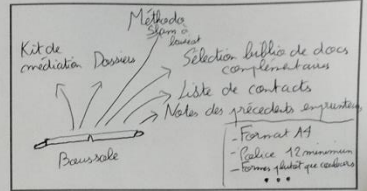 Méthodo
Slam à
Kit de
médiation
Dossiers
Sélection biblio de docs
complémentaires
Liste de contacts
Notes des précédents emprunteurs
Baussole
- Format A4
- Police 12 minimum
- Formes plutôt que couleurs
...